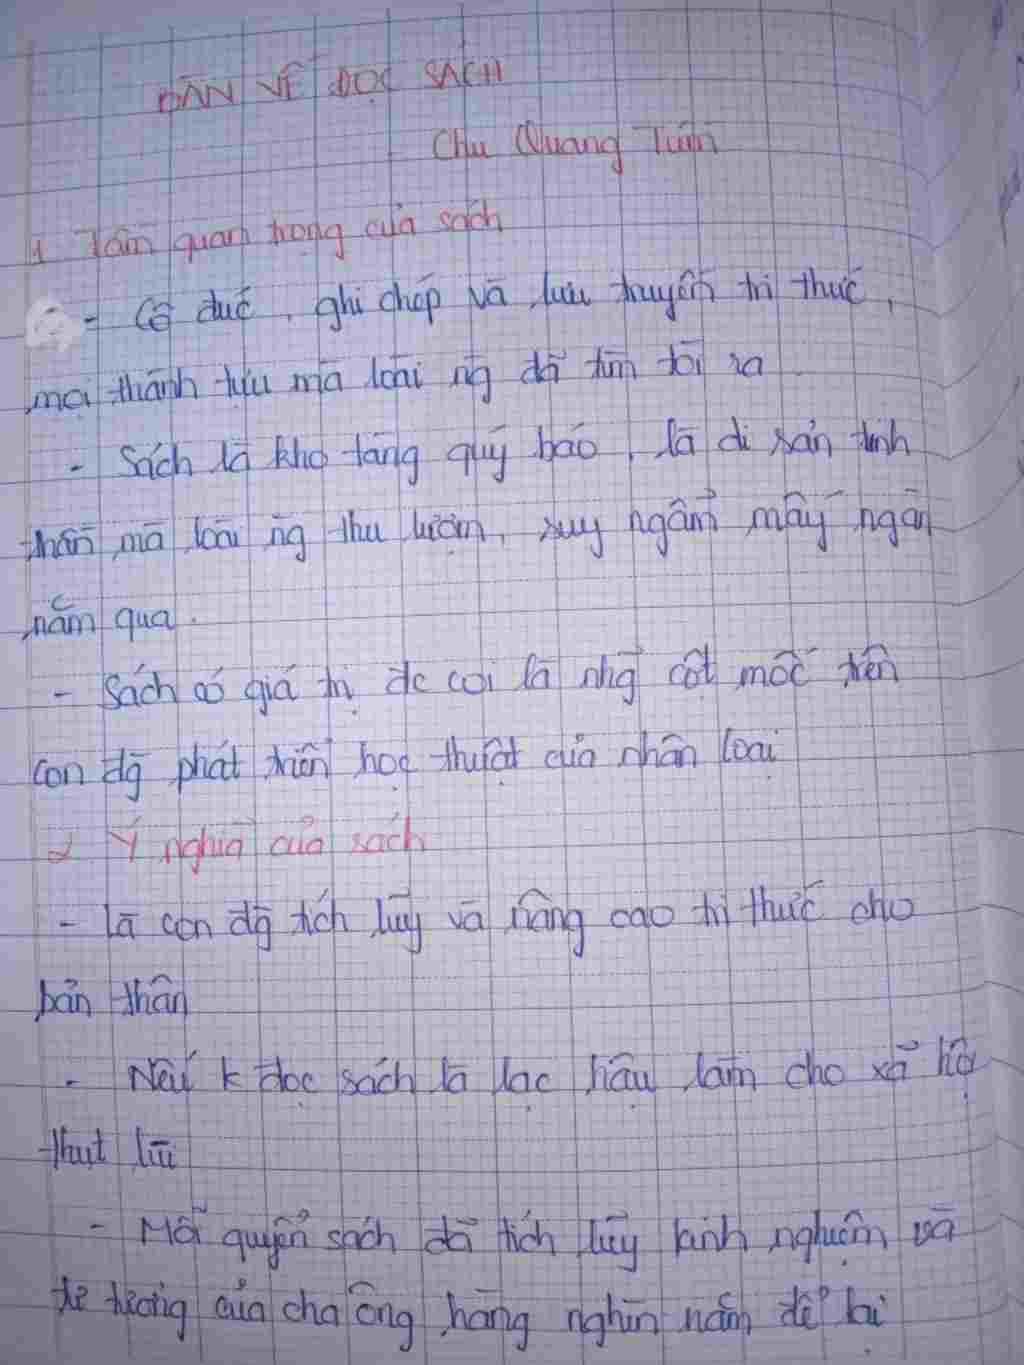 BÀN VỀ ĐỌC SÁCH
Chu Quang Tiềm
1 Tầm quan trọng của sách
- Cô đúc, ghi chép và lưu truyền tri thức,
mọi thành tựu mà loài ng đã tìm tòi ra
- Sách là kho tàng quý báo, là di sản tinh
thần mà loài ng thu lượm, suy ngẫm mấy ngàn
năm qua.
- Sách có giá trị đc coi là nhg cột mốc trên
con đg phát triển học thuật của nhân loại
2 Ý nghĩa của sách
- Là con đg tích lũy và nâng cao tri thức cho
bản thân
- Nếu k đọc sách là lạc hậu làm cho xã hội
thụt lùi
- Mỗi quyển sách đã tích lũy kinh nghiệm và
tư tưởng của cha ông hàng nghìn năm để lại